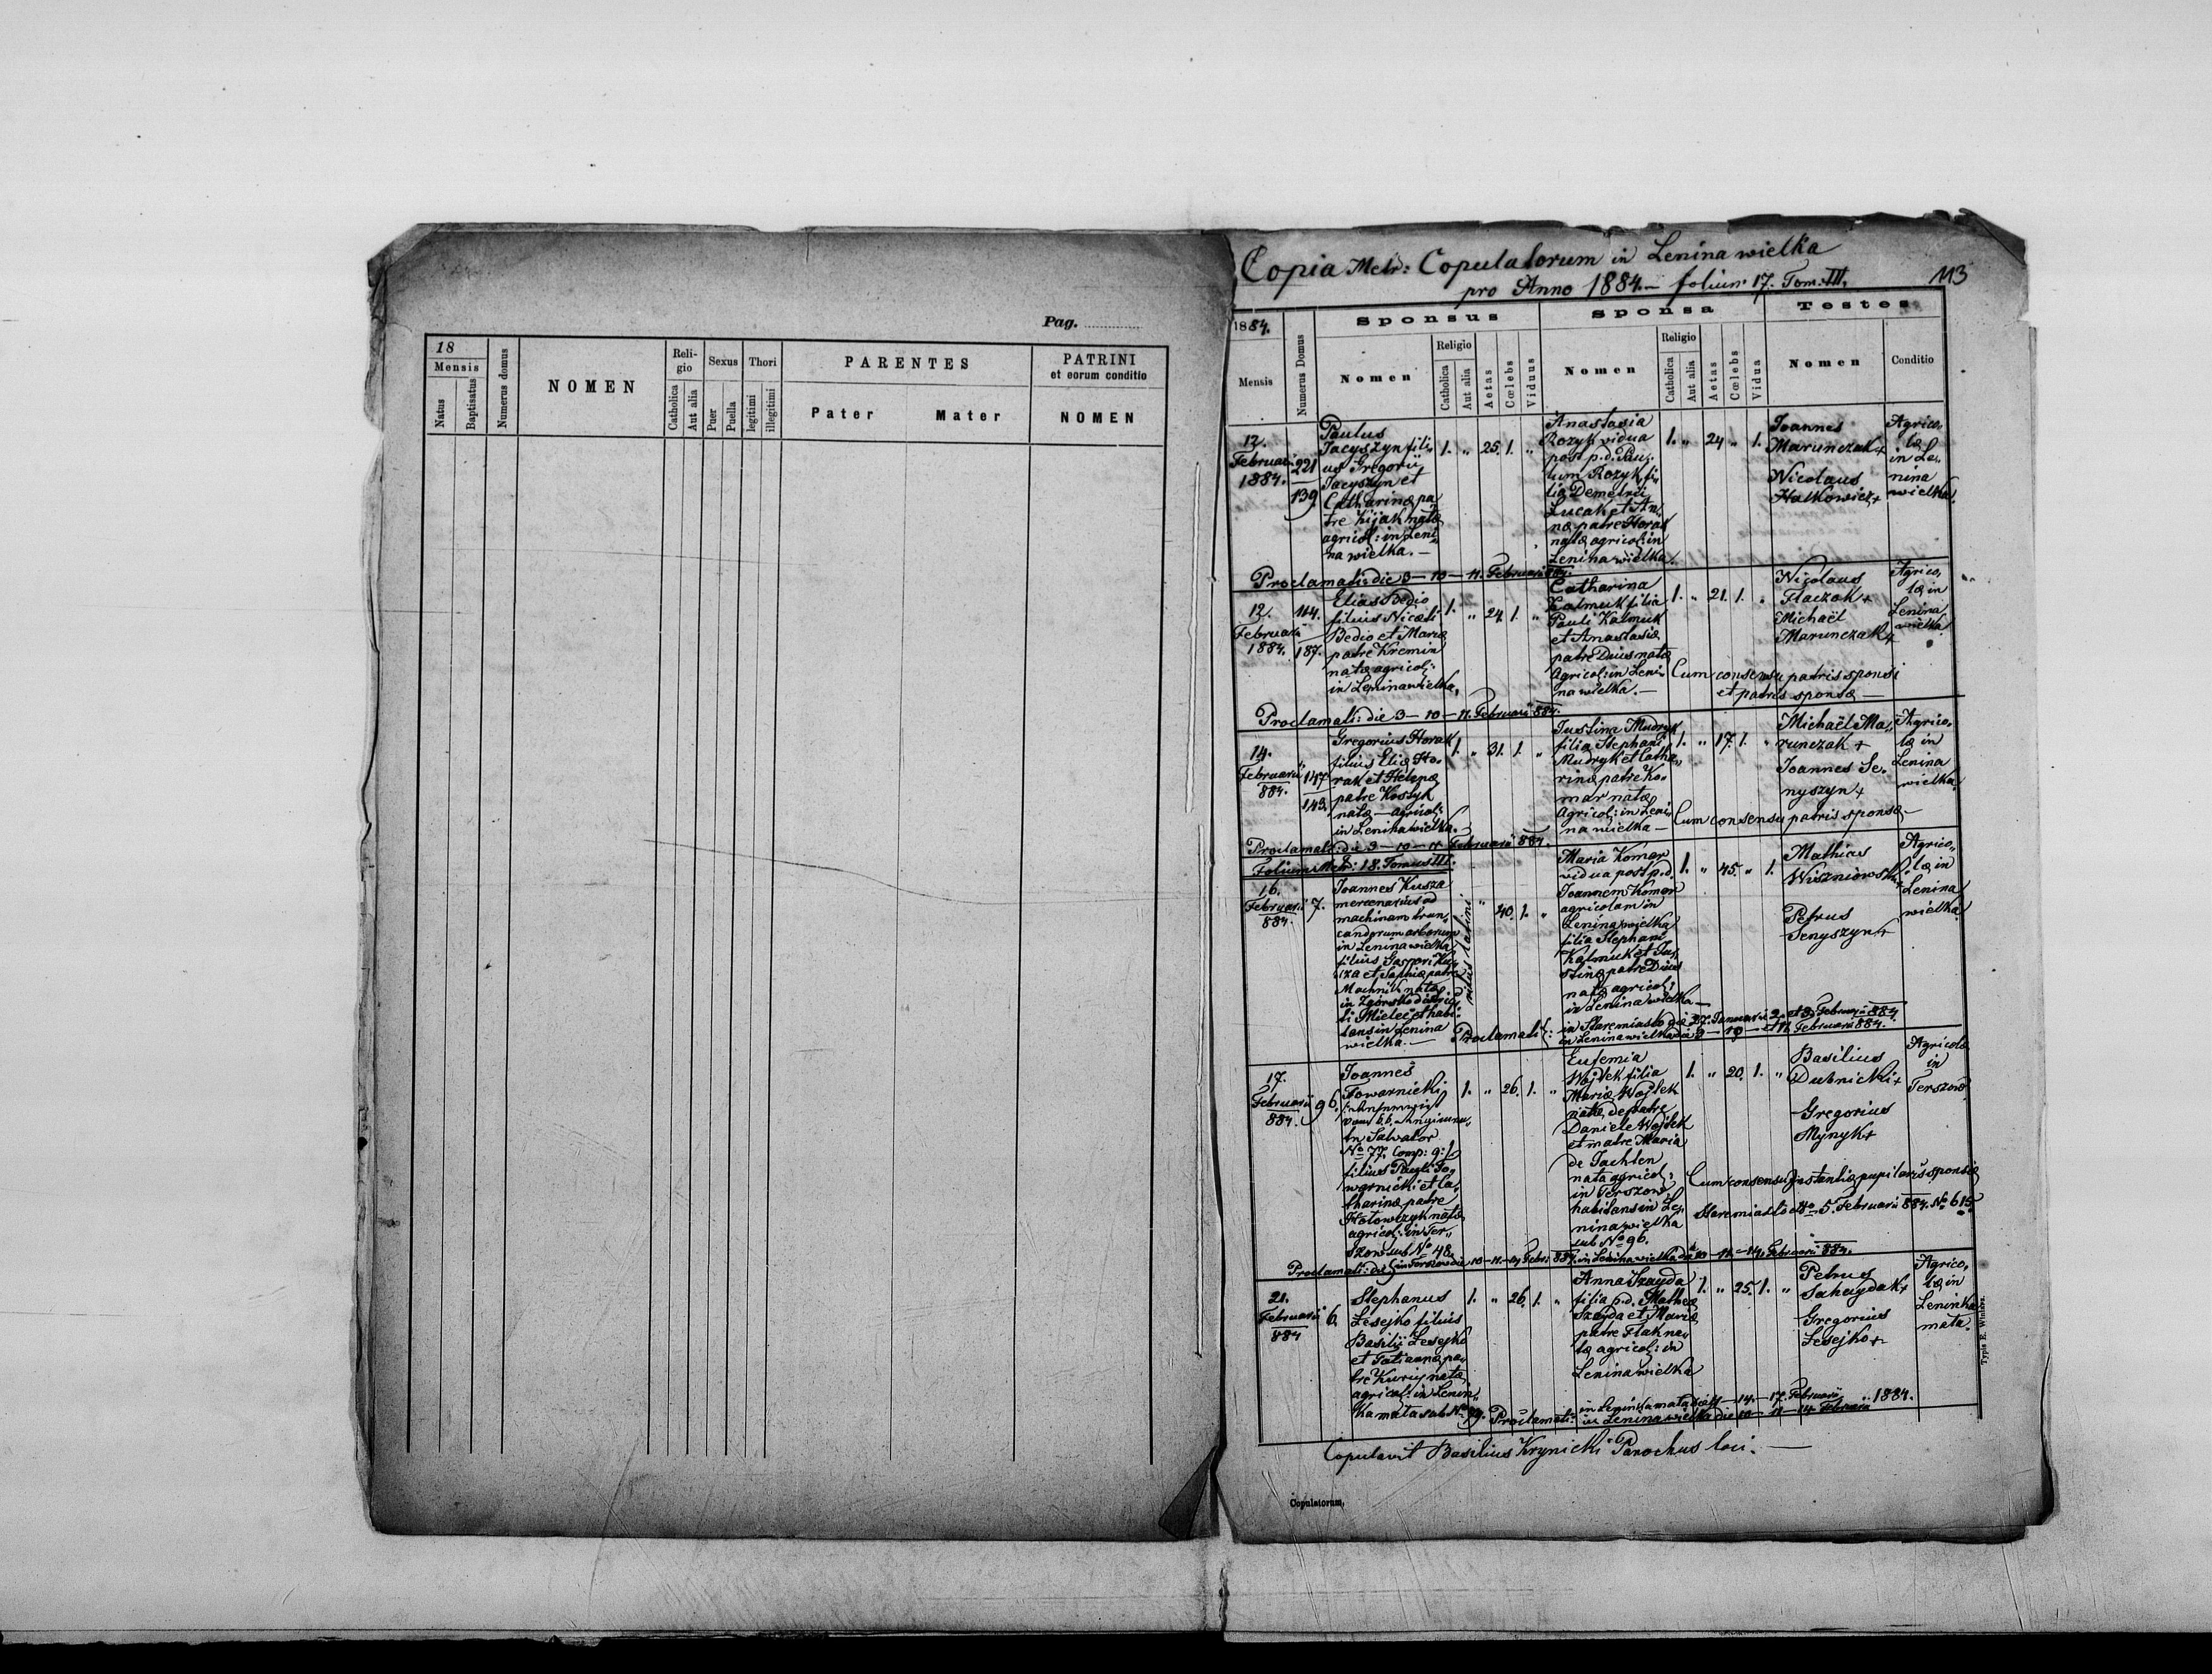 Pag.
18
Mensis
Natus
Baptisatus
Numerus domus
NOMEN
Religio
Catholica
Aut alia
Sexus
Puer
Puella
Thori
legitimi
illegitimi
PARENTES
Pater
Mater
PATRINI
et eorum conditio
NOMEN
Copia Metr: Copulatorum in Lenina wielka
pro Anno 1884.— folium 17. Tom. III.
113
1884.
Mensis
Numerus Domus
Sponsus
Nomen
Religio
Catholica
Aut alia
Aetas
Cœlebs
Viduus
Sponsa
Nomen
Religio
Catholica
Aut alia
Aetas
Cœlebs
Vidua
Testes
Nomen
Conditio
12.
Februarii
1884.
221
139
Paulus
Jacyszyn fili„
us Gregorii
Jacyszyn et
Catharinæ pa
tre Kijak natæ
agricol: in Leni„
na wielka.—
1. „ 25. 1. „
Anastasia
Rozyk vidua
post p.d. Pau„
lum Rozyk fi„
lia Demetrii
Łucak et An„
næ patre Horak
natæ agricol: in
Lenina wielka.
1. „ 24 „ 1.
Joannes
Marunczak +
Nicolaus
Halkowicz +
Agrico„
læ
in Le„
nina
wielka.
Proclamati: die 3— 10— 11. Februarii 884.
12.
Februarii
1884.
114.
187.
Elias Bedio
filius Nicolai
Bedio et Mariæ
patre Kremin
natæ agricol:
in Lenina wielka.
1. „ 24. 1. „
Catharina
Kalmuk filia
Pauli Kalmuk
et Anastasiæ
patre Duus natæ
Agricol: in Leni„
na wielka.—
1. „ 21. 1. „
Nicolaus
Flaczok +
Michaël
Marunczak +
Agrico„
læ in
Lenina
wielka
Cum consensu patris sponsi
et patris sponsæ —
Proclamati: die 3— 10— 11. Februarii 884.
14.
Februarii
884.
147
143.
Gregorius Horak
filius Eliæ Ho„
rak et Helenæ
patre Kostyk
natæ — agricol:
in Lenina wielka.
1. „ 31. 1. „
Justina Mudryk
filia Stephani
Mudryk et Catha„
rinæ patre Ko„
mar natæ
Agricol: in Leni„
na wielka —
1. „ 17. 1. „
Michaël Ma„
runczak +
Joannes Se„
nyszyn +
Agrico„
læ in
Lenina
wielka
Cum consensu patris sponsæ —
Proclamati: die 3— 10— 11. Februarii 884.
Folium Metr: 18. Tomus III.
16.
Februarii
884.
7.
Joannes Kusza
mercenarius ad
machinam trun„
candorum arborum
in Lenina wielka
filius Gaspari Ku„
sza et Sophiæ patre
Machnik natæ
in Zgórsko distric„
ti Mielec et habi„
tans in Lenina
wielka.—
ritus latini
„ 40. 1. „
Maria Komar
vidua post p.d.
Joannem Komar
agricolam in
Lenina wielka
filia Stephani
Kalmuk et Jus„
tinæ patre Duus
natæ agricol:
in Lenina wielka —
1. „ 45. „ 1.
Mathias
Wiszniowski +
Petrus
Senyszyn +
Agrico„
læ in
Lenina
wielka.
Proclamati: in Staremiasto die 27. Januarii 2. et 3. Februarii 884
in Lenina wielka die 3— 10— et 11. Februarii 884.
17.
Februarii
884.
96.
Joannes
Towarnicki
in Salvator
No 77. Comp: 9:
filius Pauli To„
warnicki et Ca„
tharinæ patre
natæ
agricol: in Ter„
szow sub No 48.
1. „ 26. 1. „
Eufemia
Wojtek filia
Mariæ Wojtek
natæ de patre
Daniele Wojtek
et matre Maria
de Jachlen
nata agricol:
in Terszow
habitans in Le„
nina wielka
sub No 96.
1. „ 20. 1. „
Basilius
Dubnicki +
Gregorius
Mynyk +
Agricolæ
in
Terszow
Cum consensu Instantiæ pupilaris sponsæ
Staremiasto ddto 5. Februarii 884. No 615.
Proclamati: die in Terszow die 10— 11.— 14 Febr: 884. in Lenina wielka die 10— 11.— 14. Februarii 884.
21.
Februarii
884
6.
Stephanus
Łesejko filius
Basilii Łesejko
et Tatiannæ pa„
tre Kuryj natæ
agricol: in Lenin„
ka mała sub No
1. „ 26. 1. „
Anna Szayda
filia p.d. Mathei
Szayda et Mariæ
patre Flak na„
tæ agricol: in
Lenina wielka
1. „ 25. 1. „
Petrus
Sahaydak +
Gregorius
Łesejko +
Agrico„
læ in
Leninka
mała.
Proclamati: in Leninka mała die — 14.— 17. Februarii
in Lenina wielka die 10— 11— 14. Februarii 1884.
Copulavit Basilius Krynicki Parochus loci.—
Copulatorum,
Typis E. Winiarz.